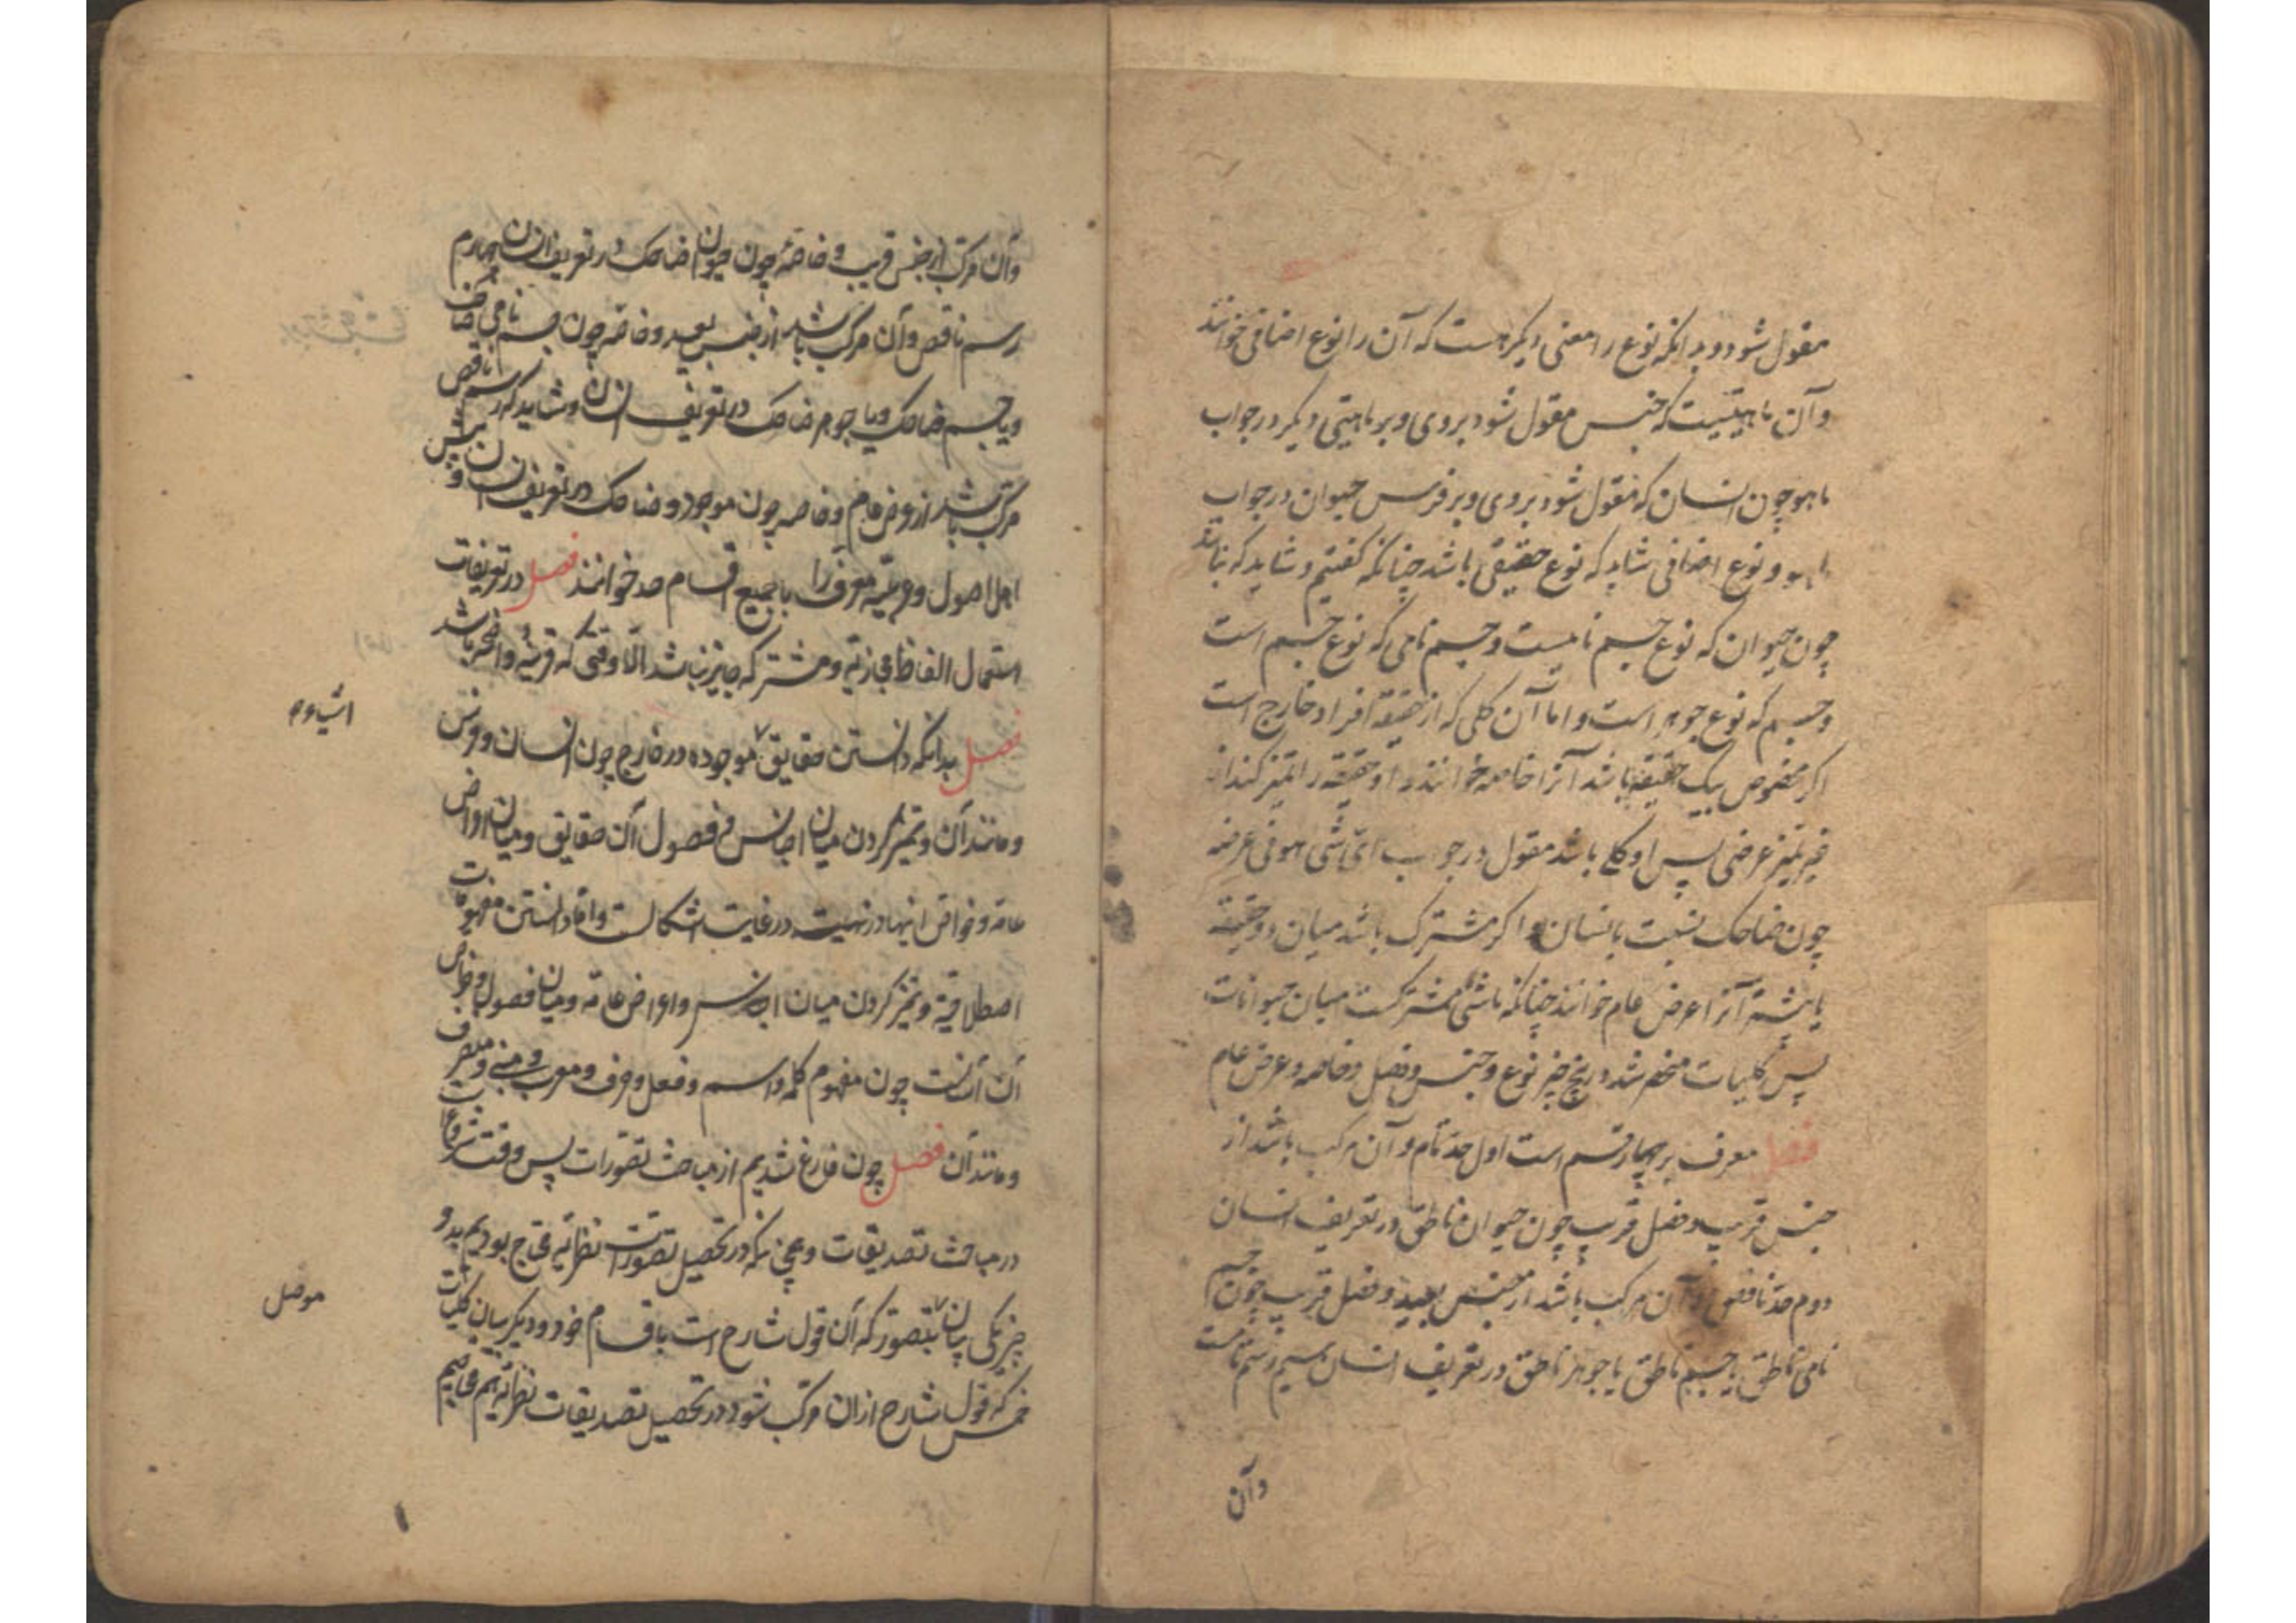 مقول شود و بدانکه نوع را معنی دیگر هست که آن را نوع اضافی خوانند
و آن ماهیتیست که جنس مقول شود بر وی و بر ماهیتی دیگر در جواب
ماهو چون انسان که مقول شود بر وی و بر فرس حیوان در جواب
ماهو و نوع اضافی شاید که نوع حقیقی باشد چنانکه گفتیم و شاید که نباشد
چون حیوان که نوع جسم نامیست و جسم نامی که نوع جسم است
و جسم که نوع جوهر است و اما آن کلی که از حقیقة افراد خارج است
اگر مخصوص بیک حقیقة باشد آنرا خاصه خوانند و او حقیقة را تمیز کند از
غیر تمیز عرضی پس او کلی باشد مقول در جواب ای شی هو فی عرضه
چون ضاحک نسبت بانسان و اگر مشترک باشد میان دو حقیقة
یا بیشتر آنرا عرض عام خوانند چنانکه ماشی مشترکست میان حیوانات
پس کلیات منحصر شد در پنج چیز نوع و جنس و فصل و خاصه و عرض عام
فصل معرف بر چهار قسم است اول حد تام و آن مرکب باشد از
جنس قریب و فصل قریب چون حیوان ناطق در تعریف انسان
دوم حد ناقص و آن مرکب باشد از جنس بعید و فصل قریب چون جسم
نامی ناطق یا جسم ناطق یا جوهر ناطق در تعریف انسان سیم رسم تامست
و آن
و آن مرکب از جنس قریب و خاصه چون حیوان ضاحک در تعریف انسان چهارم
رسم ناقص و آن مرکب باشد از جنس بعید و خاصه چون جسم نامی ضاحک
و یا جسم ضاحک و یا جوهر ضاحک در تعریف انسان و شاید که رسم ناقص
مرکب باشد از عرض عام و خاصه چون موجود و ضاحک در تعریف انسان و پیش
اهل اصول و عربیة معرف را با جمیع اقسام حد خوانند فصل در تعریفات
استعمال الفاظ مجازیه و مشترکه جایز نباشد الا وقتی که قرینه واضحه باشد
فصل بدانکه دانستن حقایق موجوده در خارج چون انسان و فرس
اشیاء
و مانند آن و تمیز کردن میان اجناس و فصول آن حقایق و میان اعراض
عامه و خواص اینها در نهایت در غایت اشکالست و اما دانستن مفهومات
اصطلاحیه و تمیز کردن میان اجناس و اعراض عامه و میان فصول و خواص
آن آسانست چون مفهوم کلمه و اسم و فعل و حرف و معرب و مبنی و منصرف
و مانند آن فصل چون فارغ شدیم از مباحث تصورات پس وقت شروعست
در مباحث تصدیقات و همچنانکه در تحصیل تصورات نظریه محتاج بودیم بدو
چیز یکی بیان بتصور که آن قول شارح است باقسام خود و دیگر بیان کلیات
موصل
خمس که قول شارح از آن مرکب شود در تحصیل تصدیقات نظریه هم محتاجیم